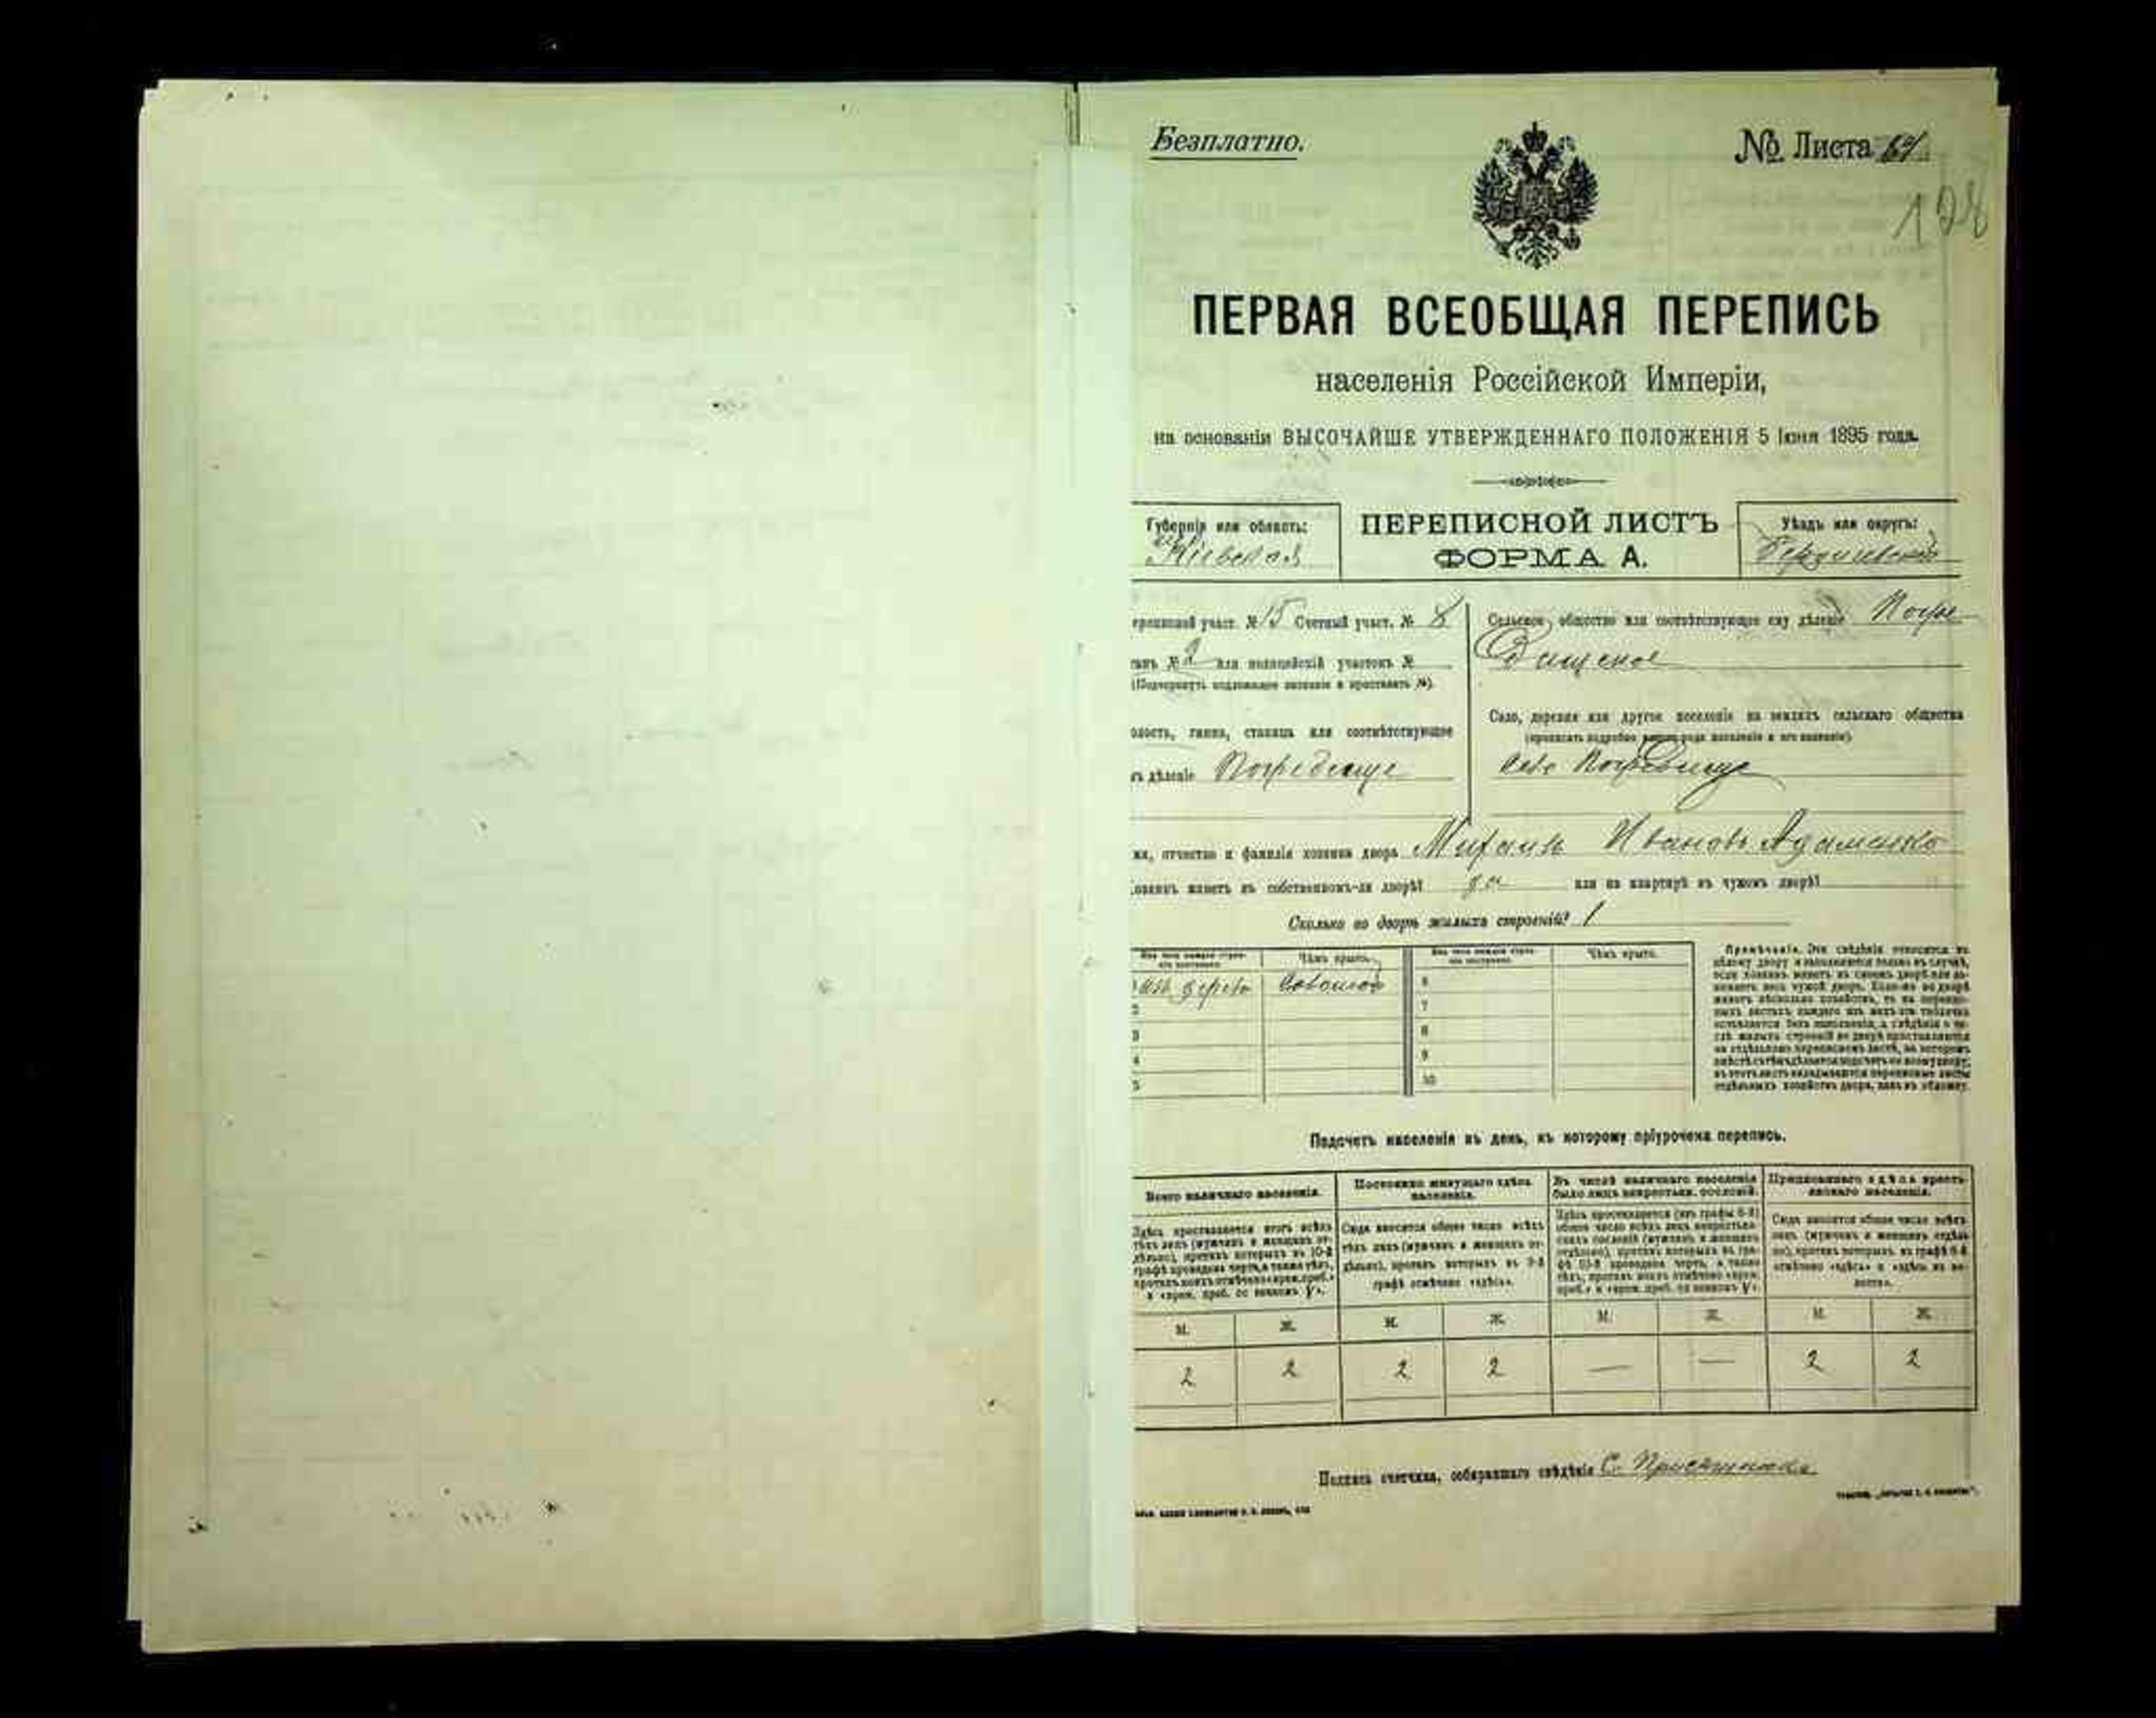 Безплатно.
№ Листа 64
128
ПЕРВАЯ ВСЕОБЩАЯ ПЕРЕПИСЬ
населенія Россійской Имперіи,
на основаніи ВЫСОЧАЙШЕ УТВЕРЖДЕННАГО ПОЛОЖЕНІЯ 5 Іюня 1895 года.
Губернія или область:
Кіевская
ПЕРЕПИСНОЙ ЛИСТЪ
ФОРМА А.
Уѣздъ или округъ:
Бердичевскій
участ. № 15 Счетный участ. № 8
танъ № 2 или полицейскій участокъ №
(Подчеркнуть подлежащее названіе и проставить №).
олость, гмина, станица или соотвѣтствующее
дѣленіе Погребище
Сельское общество или соотвѣтствующее ему дѣленіе Погре
бищское
Село, деревня или другое поселеніе на земляхъ сельскаго общества
(прописать подробно какого рода поселеніе и его названіе)
село Погребище
мя, отчество и фамилія хозяина двора Михаилъ Ивановъ Адаменко
озяинъ живетъ въ собственномъ-ли дворѣ? да или на квартирѣ въ чужомъ дворѣ?
Сколько во дворѣ жилыхъ строеній? 1
Изъ чего каждое строеніе построено. Чѣмъ крыто. Изъ чего каждое строеніе построено. Чѣмъ крыто.
1 изъ дерева Соломой 6
2 7
3 8
4 9
5 10
Примѣчаніе. Эти свѣдѣнія относятся къ
цѣлому двору и заполняются только въ случаѣ,
если хозяинъ живетъ въ своемъ дворѣ или за-
нимаетъ весь чужой дворъ. Если-же во дворѣ
живетъ нѣсколько хозяйствъ, то на перепис-
ныхъ листахъ каждаго изъ нихъ эта табличка
оставляется безъ заполненія, а свѣдѣнія о чи-
слѣ жилыхъ строеній во дворѣ проставляются
на отдѣльномъ переписномъ листѣ, на которомъ
въ этотъ листъ вкладываются переписные листы
отдѣльныхъ хозяйствъ двора, какъ въ обложку.
Подсчетъ населенія въ день, къ которому пріурочена перепись.
Всего наличнаго населенія.
Здѣсь проставляется итогъ всѣхъ
тѣхъ лицъ (мужчинъ и женщинъ от-
дѣльно), противъ которыхъ въ 10-й
графѣ проведена черта, а также тѣхъ,
противъ коихъ отмѣчено «врем. преб.»
и «врем. преб. со знакомъ V».
Постоянно живущаго здѣсь
населенія.
Сюда вносится общее число всѣхъ
тѣхъ лицъ (мужчинъ и женщинъ от-
дѣльно), противъ которыхъ въ 9-й
графѣ отмѣчено «здѣсь».
Въ числѣ наличнаго населенія
было лицъ некрестьян. сословій.
Здѣсь проставляется (изъ графы 6-й)
общее число всѣхъ лицъ некрестьян-
скихъ сословій (мужчинъ и женщинъ
отдѣльно), противъ которыхъ въ гра-
фѣ 10-й проведена черта, а также
тѣхъ, противъ коихъ отмѣчено «врем.
преб.» и «врем. преб. со знакомъ V».
Приписаннаго здѣсь кресть-
янскаго населенія.
Сюда вносится общее число всѣхъ
лицъ (мужчинъ и женщинъ отдѣль-
но), противъ которыхъ въ графѣ 8-й
отмѣчено «здѣсь» и «здѣсь въ во-
лости».
М. Ж. М. Ж. М. Ж. М. Ж.
2 2 2 2 — — 2 2
Подпись счетчика, собиравшаго свѣдѣнія С.